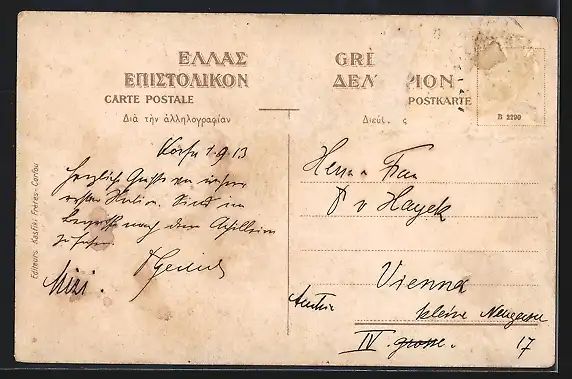 ΕΛΛΑΣ
ΕΠΙΣΤΟΛΙΚΟΝ
CARTE POSTALE
Διὰ τὴν ἀλληλογραφίαν
GRÈ
ΔΕΛ ΡΙΟΝ
POSTKARTE
Διεύ ς
B 2290
Editeurs Kasfiki Frères - Corfou
Korfu 1.9.13
Herzliche Grüße von unserer
ersten Station. Sind im
nach dem Achilleion
zu fahren.
Mizi.
Herrn Frau
v Hayek
Vienna
Austria
kleine Neugasse
IV. grosse. 17